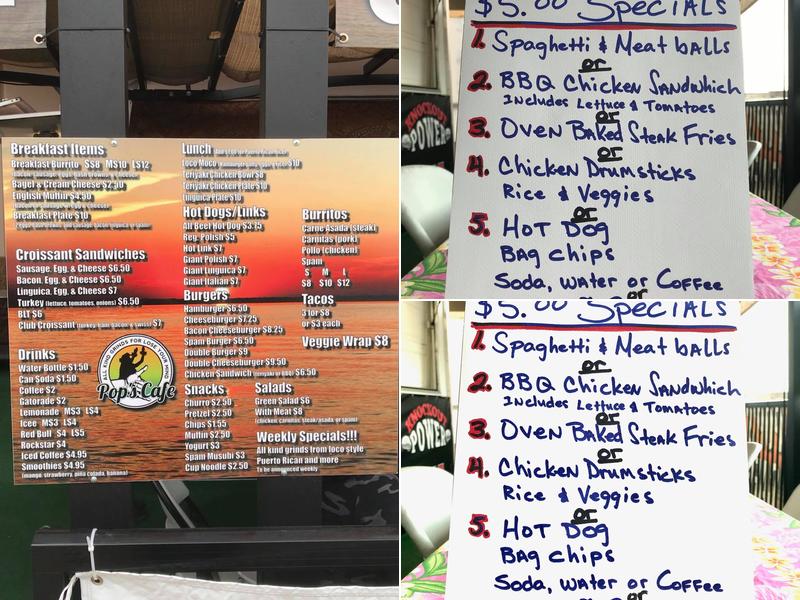 Breakfast Items
Breakfast Burrito S$8 M$10 L$12
Bagel & Cream Cheese $2.50
English Muffin $4.50
Breakfast Plate $10
Croissant Sandwiches
Sausage, Egg, & Cheese $6.50
Bacon, Egg, & Cheese $6.50
Linguica, Egg, & Cheese $7
Turkey (lettuce, tomatoes, onions) $6.50
BLT $6
Club Croissant (turkey, ham, bacon, & swiss) $7
Drinks
Water Bottle $1.50
Can Soda $1.50
Coffee $2
Gatorade $2
Lemonade M$3 L$4
Icee M$3 L$4
Red Bull $4 L$5
Rockstar $4
Iced Coffee $4.95
Smoothies $4.95
(mango, strawberry, pina colada, banana)
ALL KIND GRINDS FOR LOSE YOUR MIND
Pop's Cafe
Lunch
Loco Moco $10
Teriyaki Chicken Bowl $8
Teriyaki Chicken Plate $10
Linguica Plate $10
Hot Dogs/Links
All Beef Hot Dog $3.75
Reg. Polish $5
Hot Link $7
Giant Polish $7
Giant Linguica $7
Giant Italian $7
Burgers
Hamburger $6.50
Cheeseburger $7.25
Bacon Cheeseburger $8.25
Spam Burger $6.50
Double Burger $9
Double Cheeseburger $9.50
Chicken Sandwich (teriyaki or BBQ) $6.50
Snacks
Churro $2.50
Pretzel $2.50
Chips $1.55
Muffin $2.50
Yogurt $3
Spam Musubi $3
Cup Noodle $2.50
Burritos
Carne Asada (steak)
Carnitas (pork)
Pollo (chicken)
Spam
S M L
$8 $10 $12
Tacos
3 for $8
or $3 each
Veggie Wrap $8
Salads
Green Salad $6
With Meat $8
(chicken, carnitas, steak/asada, or spam)
Weekly Specials!!!
All kind grinds from loco style
Puerto Rican and more
To be announced weekly
$5.00 Specials
1. Spaghetti & Meat balls
or
2. BBQ Chicken Sandwhich
Includes Lettuce & Tomatoes
or
3. Oven Baked Steak Fries
or
4. Chicken Drumsticks
Rice & Veggies
or
5. Hot Dog
Bag Chips
Soda, Water or Coffee
or
KNOCKOUT
POWER
$5.00 Specials
1. Spaghetti & Meat balls
or
2. BBQ Chicken Sandwhich
Includes Lettuce & Tomatoes
or
3. Oven Baked Steak Fries
or
4. Chicken Drumsticks
Rice & Veggies
or
5. Hot Dog
Bag Chips
Soda, Water or Coffee
or
KNOCKOUT
POWER